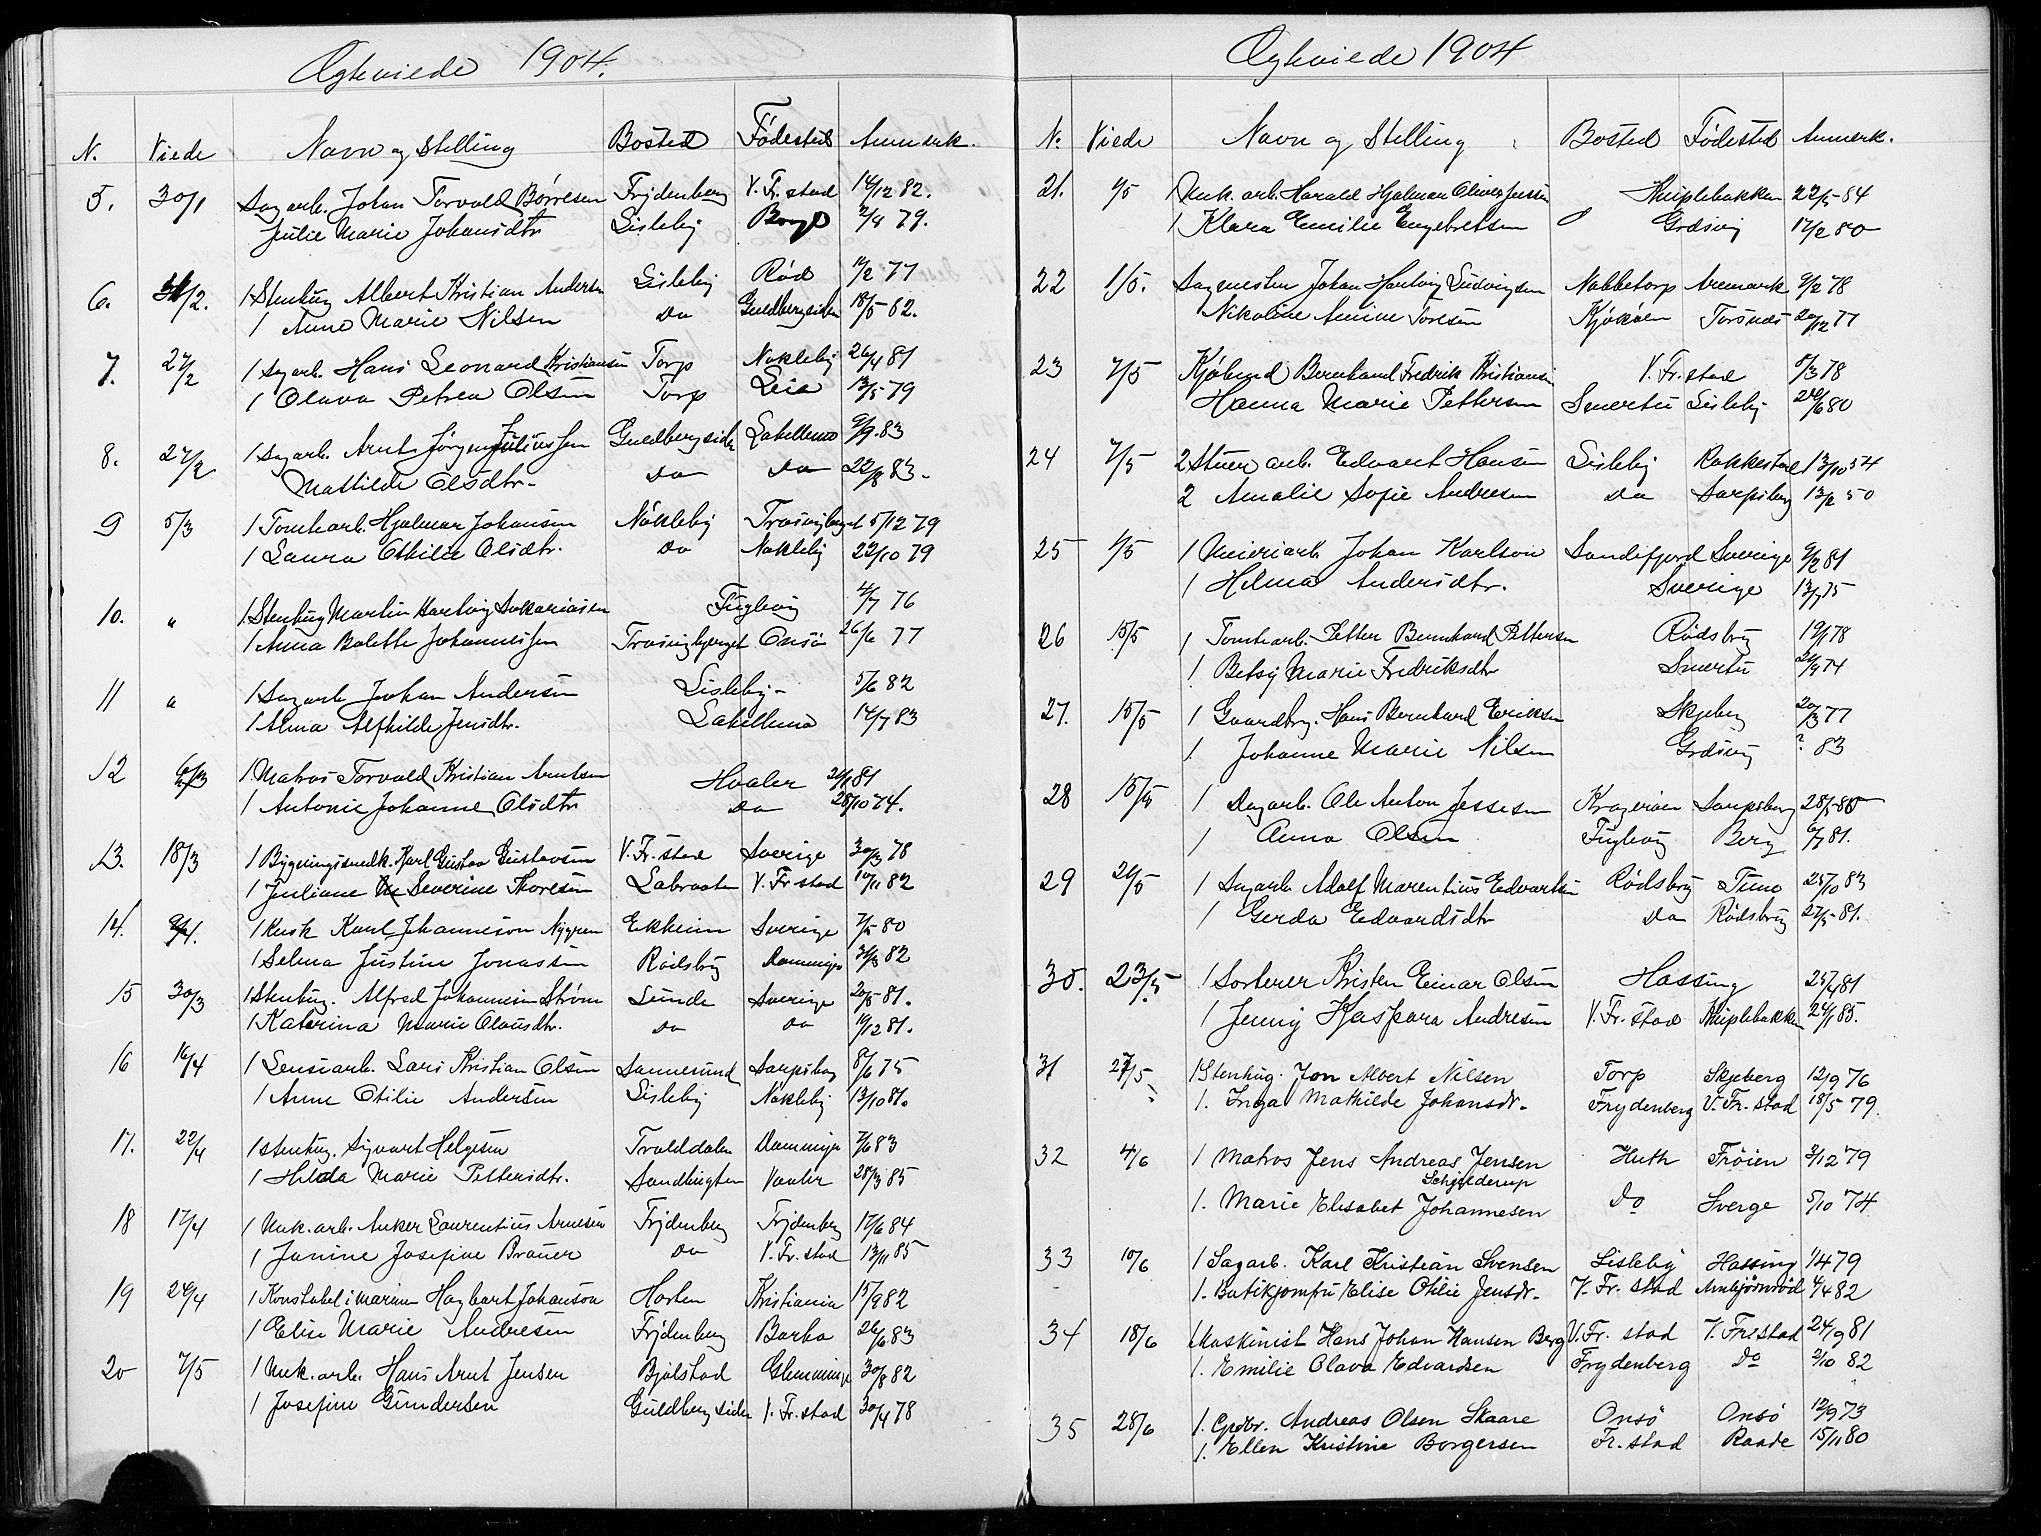 Ægteviede 1904.
N. Viede Navn og Stilling Bosted Fødested Anmerk.
5. 30/1 Sagarb. Johan Torvald Børresen Frydenberg V. Fr.stad 14/12 82.
Julie Marie Johansdtr Lisleby Borge 2/4 79.
6. /2. 1 Stenhug Albert Kristian Andersen Lisleby Rød 14/2 77
1 Anne Marie Nilsen Do Guldbergsiden 18/5 82.
7. 27/2 1 Sagarb. Hans Leonard Kristiansen Torp Nokleby 26/4 81
1 Olava Petrea Olsen Torp Leie 13/5 79
8. 27/2 1 Sagarb. Arnt Jørgen Juliussen Guldbergsiden Labellmo 9/9 83
Mathilde Olsdtr. Do Do 22/8 83.
9 5/3 1 Tomtearb. Hjalmar Johansen Nøkleby Trosvigberget 5/12 79
1 Laura Othilie Olsdtr. Do Nøkleby 22/10 79
10. " 1 Stenhug Martin Hartvig Sakariasen Fuglevig 4/7 76
1 Anna Bolette Johannessen Trosvigberget Onsø 26/6 77
11 " 1 Sagarb Johan Andersen Lisleby 5/6 82
1 Alma Alfhilde Jensdtr. Labellmo 14/7 83
12 6/3 1 Matros Torvald Kristian Arntsen Hvaler 21/1 81
1 Antonie Johanne Olsdtr Do 28/10 74.
13. 18/3 1 Bygningssnedk. Karl Gustav Gustavsen V. Fr. stad Sverige 30/3 78
1 Juliane Severine Thoresen Labraaten V. Fr stad 10/11 82
14. /4. 1 Kusk Karl Johanneson Nygren Ekheim Sverige 7/5 80
1 Selma Justine Jonassen Rødsbrug Rommingen 31/3 82
15 30/3 1 Stenhug. Alfred Johannesen Strøm Lunde Sverige 20/5 81.
1 Katarina Marie Olausdtr. Do Do 19/12 81.
16 16/4 1 Lensearb. Lars Kristian Olsen Sannesund Sarpsborg 8/6 75
1 Anne Otilie Andersen Lisleby Nøkleby 13/10 81.
17. 22/4 1 Stenhug. Sigvart Helgesen Trolddalen Rommingen 7/6 83
1 Hilda Marie Pettersdtr. Sandbugten Vaaler 28/3 85
18 17/4 1 Mek. arb. Anker Laurentius Arnesen Frydenberg Frydenberg 17/6 84
1 Janine Josefine Brauer Do V. Fr. stad 13/11 85
19 24/4 1 Konstabel i marinen Hagbart Johanson Horten Kristiania 15/9 82
1 Elise Marie Andresen Frydenberg Borka 26/6 83
20 7/5 1 Mek. arb. Hans Arnt Jensen Bjølstad Glemminge 30/8 82
1 Josefine Gundersen Guldbergsiden V. Fr. stad 30/4 78
Ægteviede 1904
N. Viede Navn og Stilling Bosted Fødested Anmerk.
21. 1/5 1 Mek. arb. Harald Hjalmar Oliver Jensen Kniplebakken 22/5 84
1 Klara Emilie Engebretsen Gresvig 17/2 80
22 1/5. Sagmester Johan Hartvig Ludvigsen Nabbetorp Aremark 9/2 78
Nikoline Amine Toresen Kjøkøen Torsnes 20/12 77
23 7/5 Kjøbmd Bernhard Fredrik Kristiansen V. Fr. stad 8/3 78
Hanna Marie Pettersen Smertu Lisleby 20/6 80
24 7/5 2 Stuer arb. Edvart Hansen Lisleby Rakkestad 13/10 54
2 Amalie Sofie Andresen Do Sarpsborg 13/2 50
25 1/5 1 Meieriarb Johan Karlson Sandefjord Sverige 9/2 81
1 Hilma Andersdtr. Sverige 13/7 75
26 15/5 1 Tomtearb. Petter Bernhard Pettersen Rødsbrug 19/1 78
1 Betsy Marie Fredriksdtr Smertu 24/9 74
27. 15/5 1 Gaardbrg. Hans Bernhard Eriksen Skjeberg 20/3 77
1. Johanne Marie Nilsen Gresvig ? 83
28 15/5 1 Dagarb. Ole Anton Jessesen Kragerøen Sarpsborg 28/5 80
1 Anna Olsen Fuglevig Berg 6/7 81.
29 21/5 1 Sagarb Adolf Marentius Edvartsen Rødsbrug Tune 25/10 83
1 Gerda Edvardsdtr Do Rødsbrug 27/5 81.
30. 23/5 1 Sorterer Kristen Einar Olsen Hassing 25/4 81
1 Jenny Kaspara Andresen V. Fr. stad Kniplebakken 24/1 85.
31 27/5 1 Stenhug. Jon Albert Nilsen Torp Skjeberg 12/9 76
1. Inga Mathilde Johansdr. Frydenberg V. Fr. stad 18/5 79.
32 4/6 1 Matros Jens Andreas Jensen Huth Frøien 3/12 79
Schjelderup
1. Marie Elisabet Johannesen Do Sverge 5/10 74
33 10/6 1 Sagarb. Karl Kristian Svensen Lisleby Hassing 1/4 79
1. Butikjomfru Elise Otilie Jensdr. V. Fr. stad Ambjørnrød 4/4 82
34 18/6 1 Maskinist Hans Johan Hansen Berg V. Fr. stad V. Fr.stad 24/9 81
1. Emilie Olava Edvardsen Frydenberg Do 2/10 82
35 28/6 1. Grdbr. Andreas Olsen Skaare Onsø Onsø 12/9 73
1. Ellen Kristine Borgersen Fr. stad Raade 15/11 80